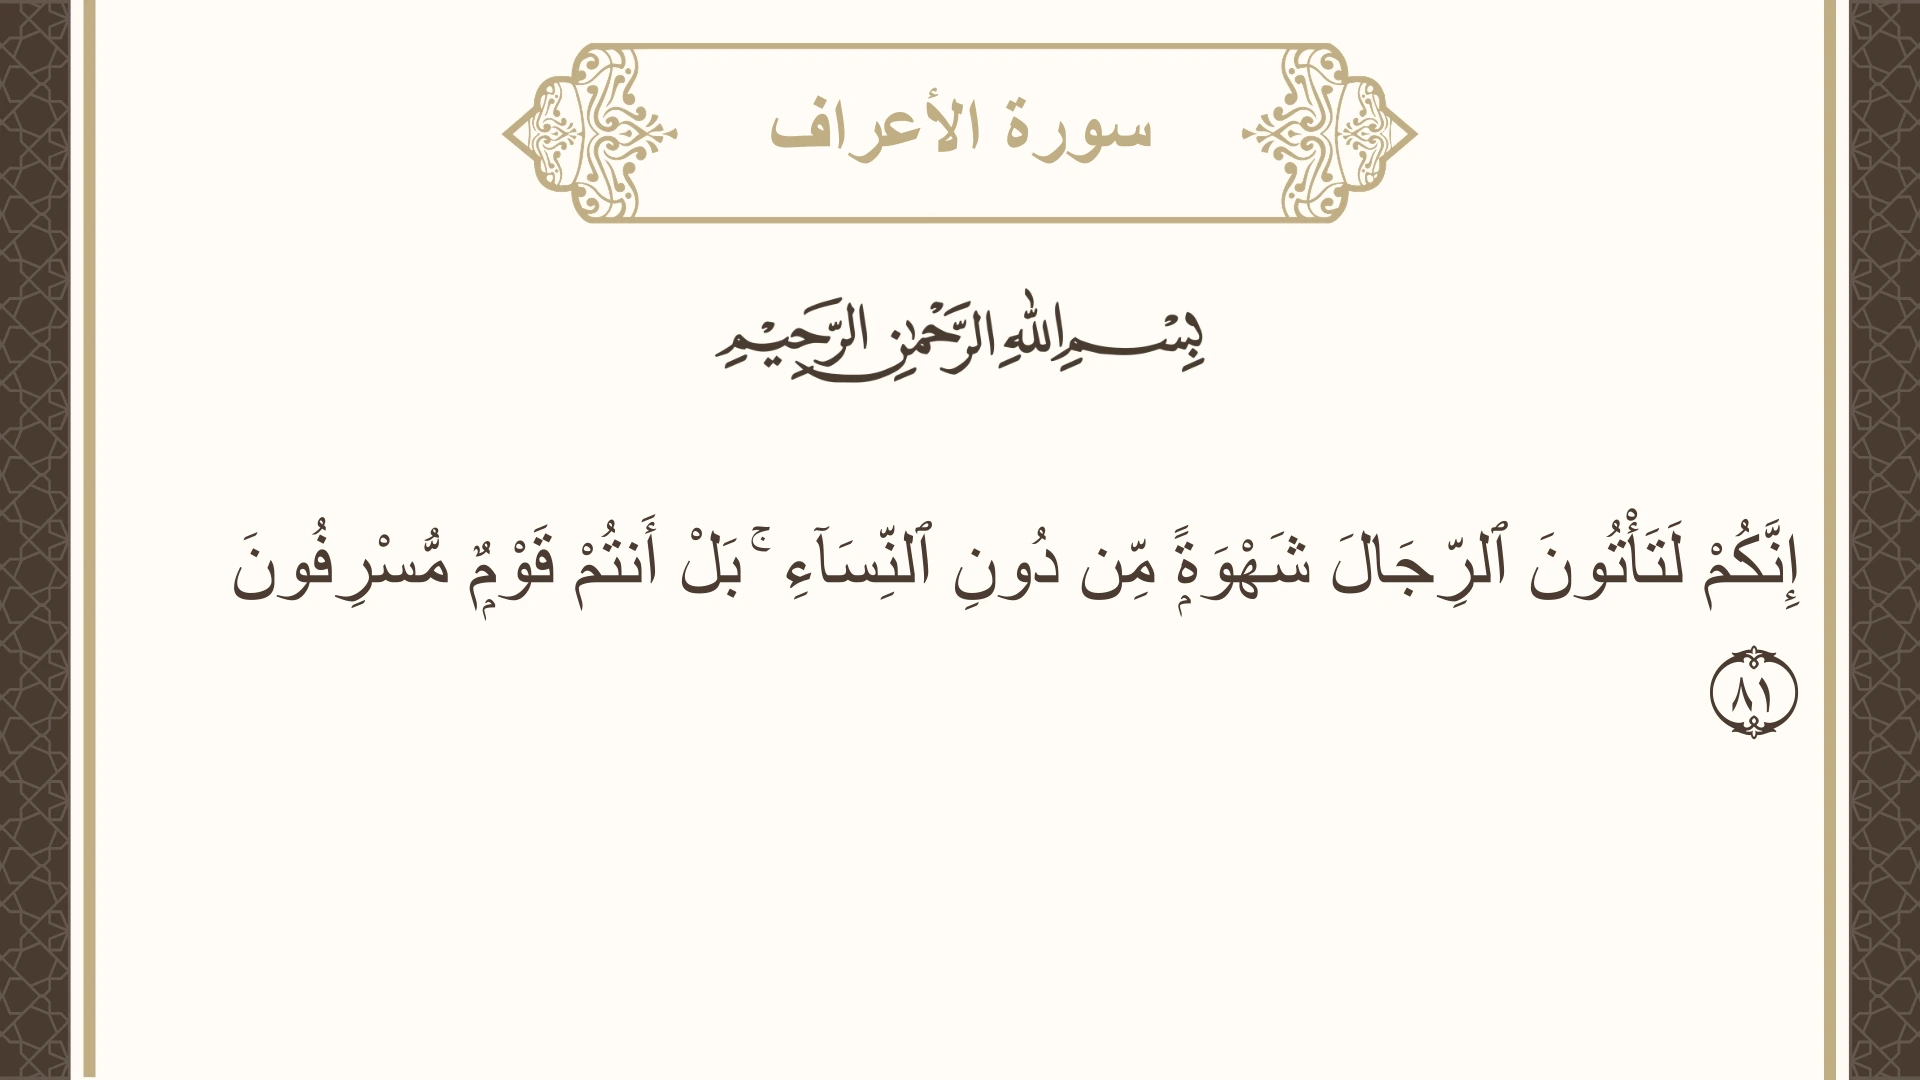 سورة الأعراف
بِسْمِ اللهِ الرَّحْمٰنِ الرَّحِيْمِ
إِنَّكُمْ لَتَأْتُونَ ٱلرِّجَالَ شَهْوَةًۭ مِّن دُونِ ٱلنِّسَآءِ ۚ بَلْ أَنتُمْ قَوْمٌۭ مُّسْرِفُونَ
٨١